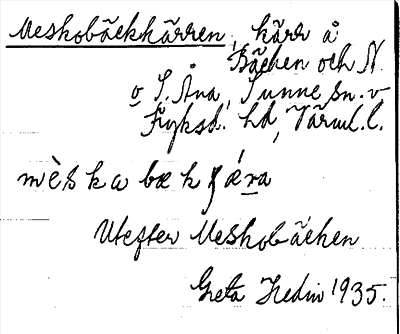 Meskobäckkärren, kärr å
Bäcken och N.
o S. Åna, Sunne sn. v
Fryksd. hd, Värml. l.
mèskabækʃǽra
Utefter Meskobäcken
Greta Hedin 1935.